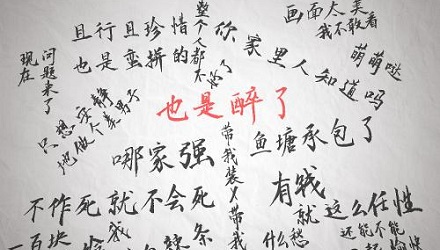 且行且珍惜
整个人都不好了
你家里人知道吗
画面太美
我不敢看
萌萌哒
也是蛮拼的
现在问题来了
只想安静
地做个美男子
也是醉了
哪家强
带我装X带我
鱼塘承包了
不作死就不会死
有钱
就这么任性
还能不能
什么愁
一百块
辣条